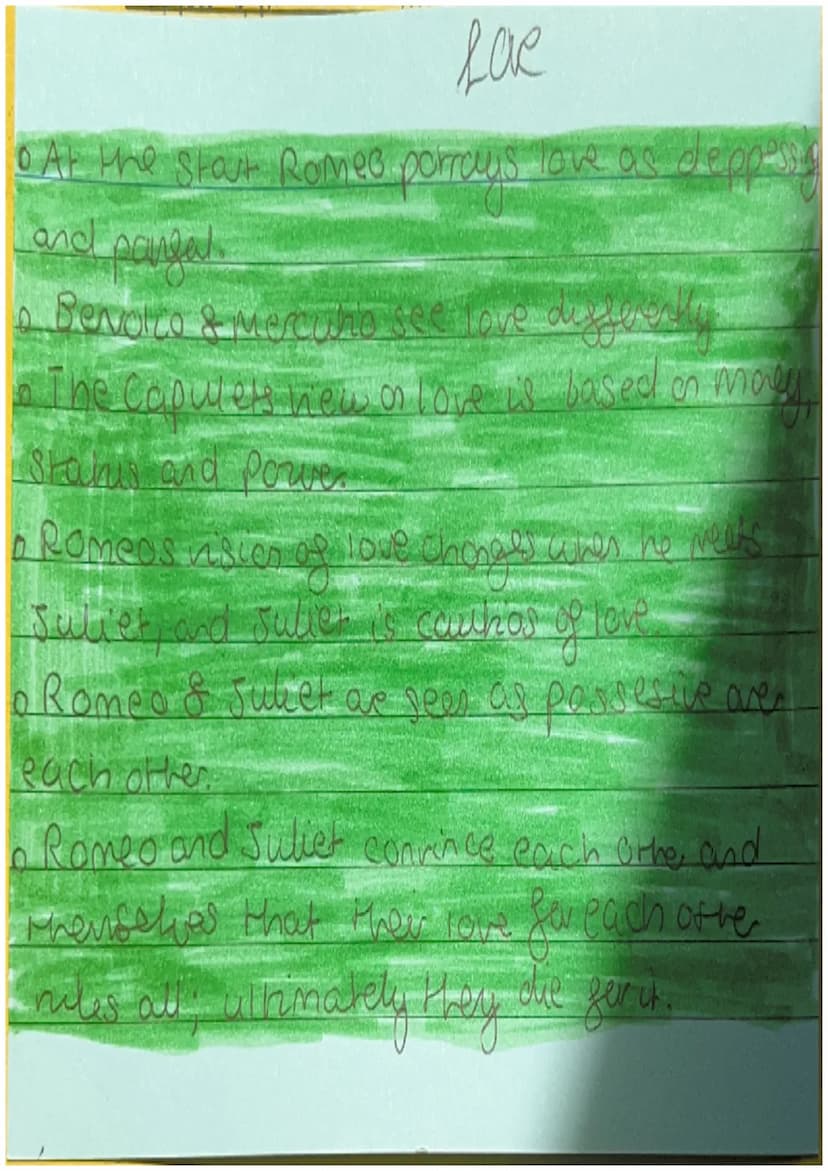 Love
o At the start Romeo portrays love as deppessig
and painful.
o Benvolio & Mercutio see love differently
o The Capulets view on love is based on money,
status and power.
o Romeos vision of love changes when he meets
Juliet, and Juliet is cauhos of love.
o Romeo & Juliet are seen as possesive over
each other.
o Romeo and Juliet convince each other and
themselves that their love for each other
rules all; ultimately they die for it.